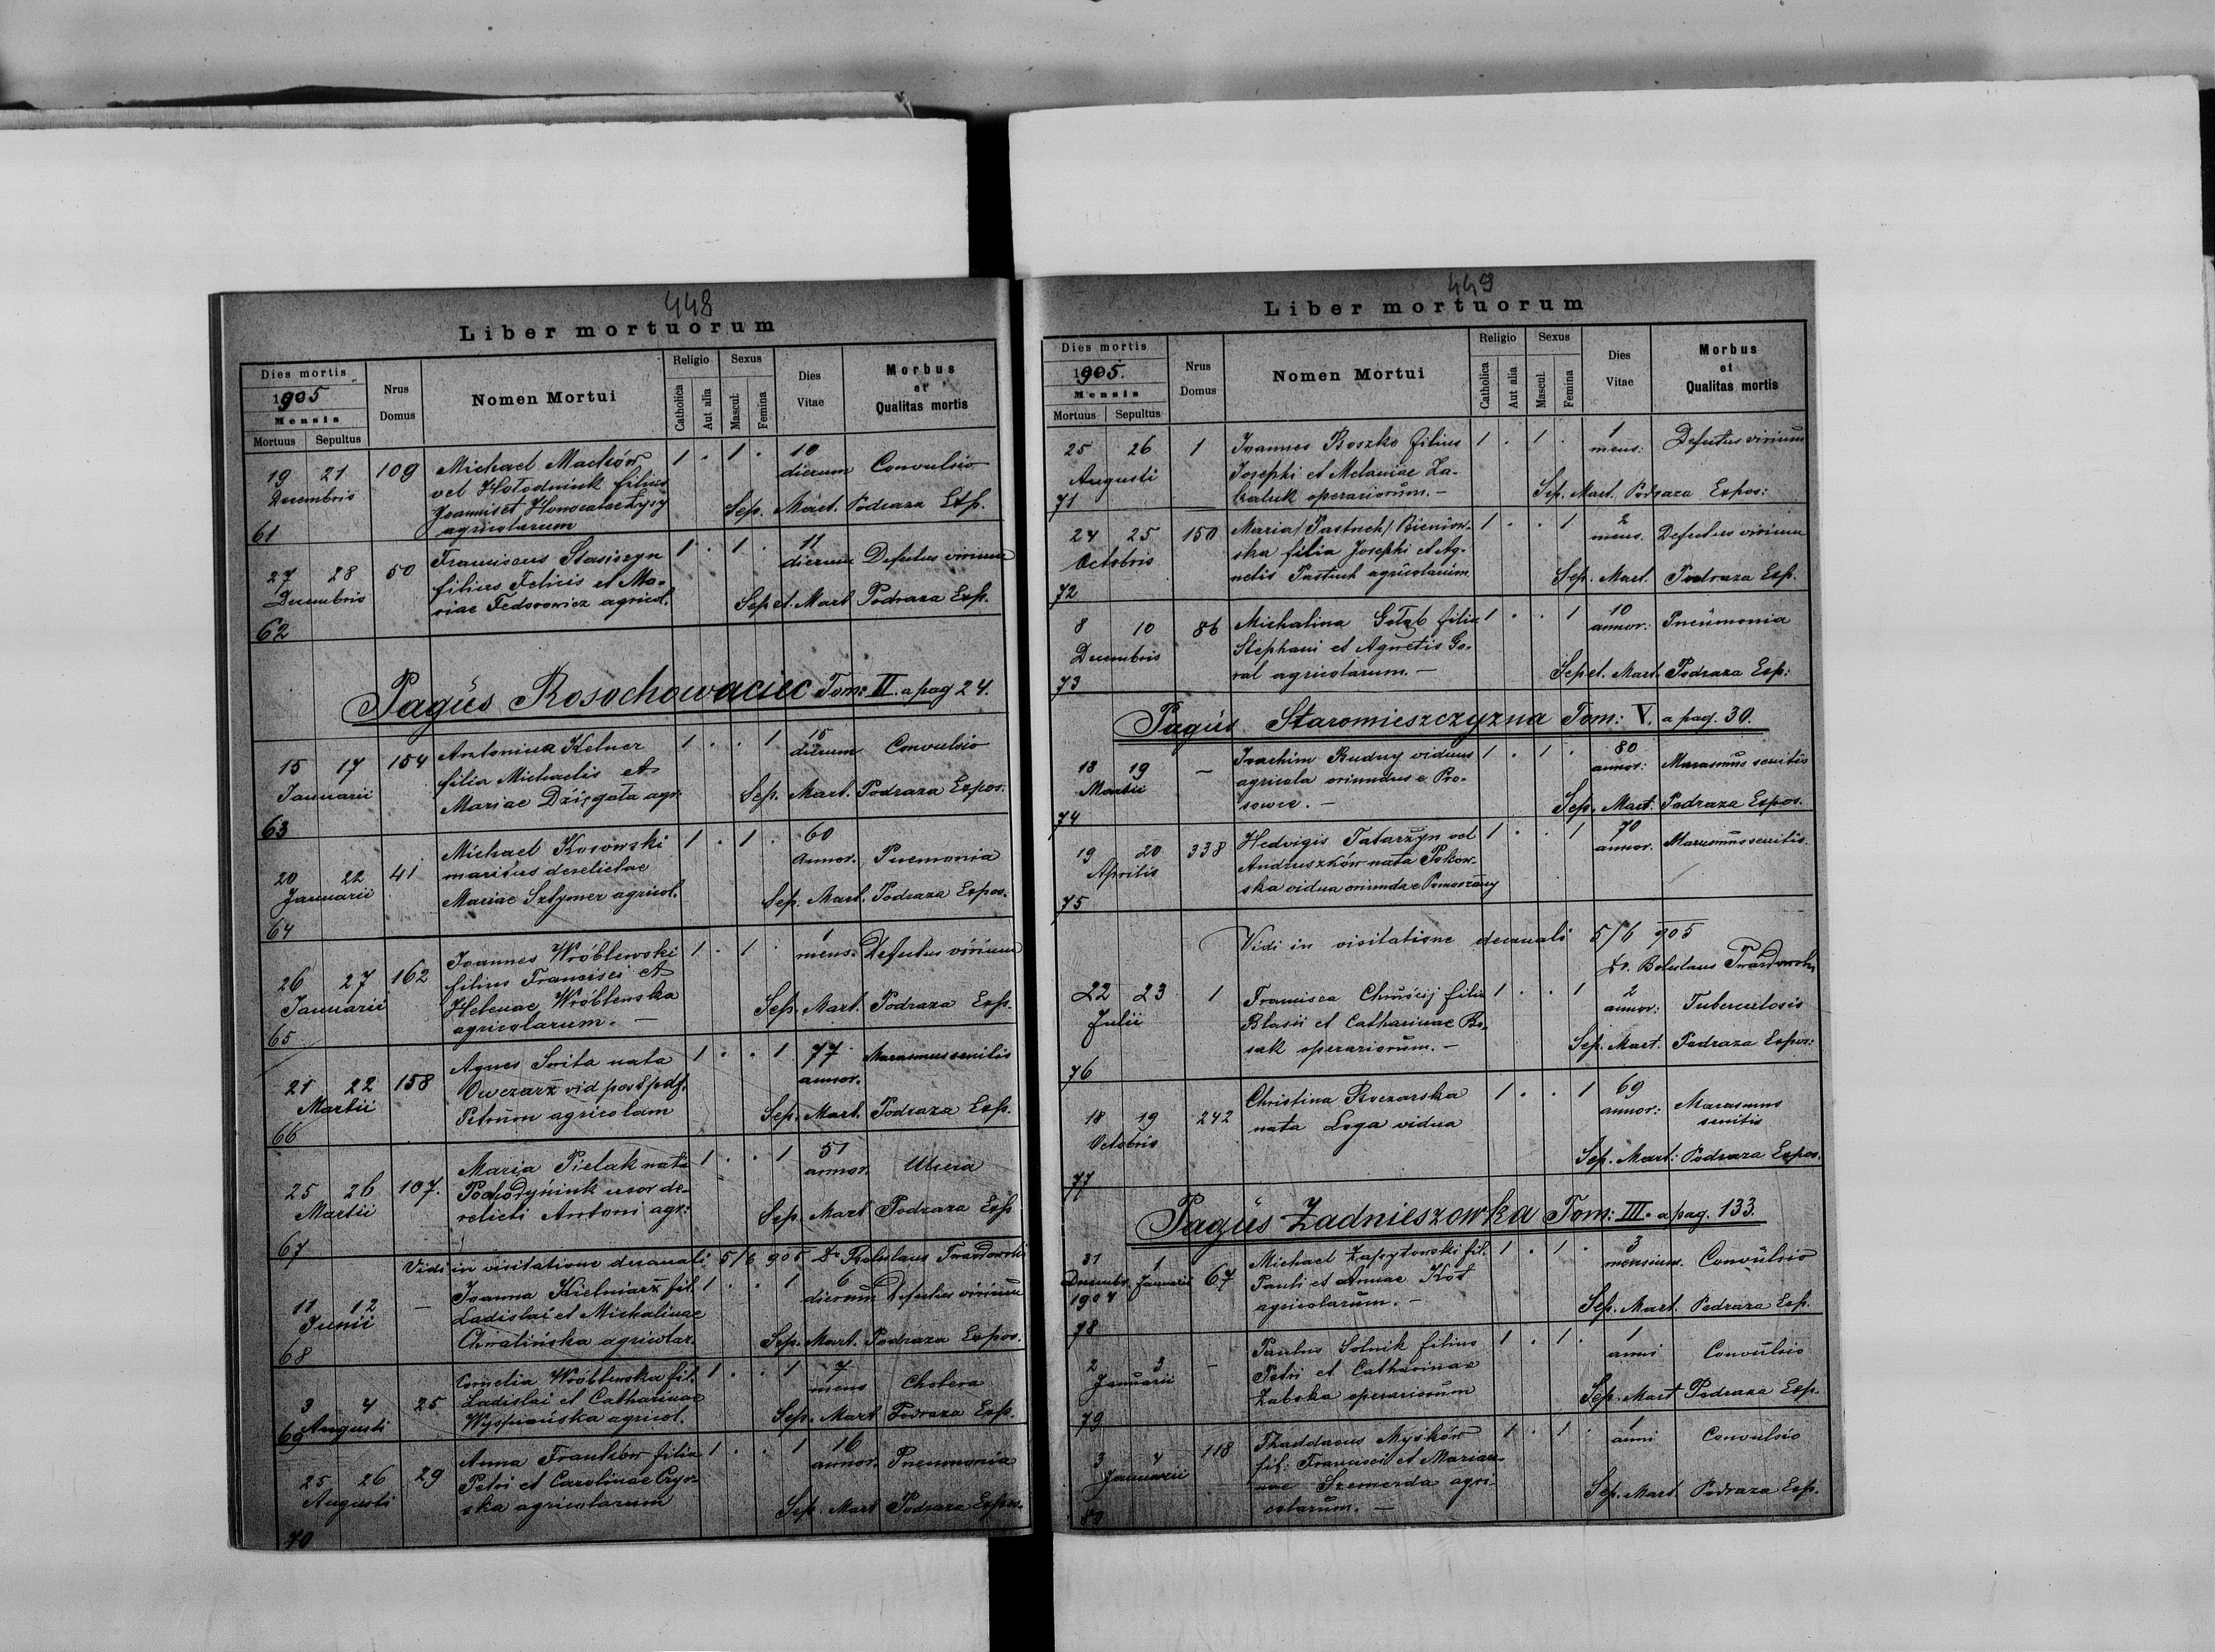 448
Liber mortuorum
Dies mortis
1905
Mensis
Mortuus Sepultus
Nrus Domus
Nomen Mortui
Religio
Catholica Aut alia
Sexus
Mascul. Femina
Dies Vitae
Morbus et Qualitas mortis
19 21 109 Michael Machów 1 . 1 . 10
Decembris vel Hołodniuk filius dierum Convulsio
Joannis et Honoratae Łysy Sep. Mart. Podraza Exp.
61 agricolarum
27 28 50 Franciscus Stasiszyn 1 . 1 . 11
Decembris filius Felicis et Ma- dierum Defectus virium
riae Fedorowicz agricol. Sepet. Mart Podraza Exp.
62
Pagus Rosochowaciec Tom: II. a pag 24.
15 17 154 Antonina Kelner 1 . . 1 15
Januarii filia Michaelis et dierum Convulsio
Mariae Dzięgała agr. Sep. Mart. Podraza Expos.
63
20 22 41 Michael Kosowski 1 . 1 . 60
Januarii maritus derelictae annor. Pnemonia
Mariae Sztymer agricol. Sep. Mart. Podraza Expos.
64
26 27 162 Joannes Wróblewski 1 . 1 . 1
Januarii filius Francisci et mens. Defectus virium
Helenae Wróblewska Sep. Mart. Podraza Exp.
65 agricolarum. —
21 22 158 Agnes Swita nata 1 . . 1 77 Marasmus senilis
Martii Owczarz vid. post pdf. annor.
Petrum agricolam Sep. Mart. Podraza Exp.
66
25 26 107. Maria Pielak nata 1 . . 1 51
Martii uxor de- annor. Ulcera
relicti Antoni agr: Sep. Mart Podraza Exp
67
Vidi in visitatione decanali 5/6 905 Dr Boleslaus Twardowski
11 12 — Joanna Kielniarz fil. 1 . . 1 6
Junii Ladislai et Michalinae dierum Defectus virium
Chwalińska agricolar. Sep. Mart. Podraza Expos.
68
3 4 25 Cornelia Wróblewska fil. 1 . . 1 7
Augusti Ladislai et Catharinae mens Cholera
69 Wyspiańska agricol. Sep. Mart Podraza Exp.
25 26 29 Anna Franków filia 1 . . 1 16
Augusti Petri et Carolinae annor. Pneumonia
ska agricolarum Sep. Mart Podraza Expos.
70
449
Liber mortuorum
Dies mortis
1905.
Mensis
Mortuus Sepultus
Nrus Domus
Nomen Mortui
Religio
Catholica Aut alia
Sexus
Mascul. Femina
Dies Vitae
Morbus et Qualitas mortis
25 26 1 Joannes Roszko filius 1 . 1 . 1
Augusti Josephi et Melaniae Za- mens: Defectus virium
operariorum. — Sep. Mart. Podraza Expos:
71
24 25 150 Maria /Pastuch/ Bieniow- 1 . . 1 2
Octobris ska filia Josephi et Ag- mens. Defectus virium
netis Pastuch agricolarum Sep. Mart. Podraza Exp.
72
8 10 86 Michalina Gołąb filia 1 . . 1 10
Decembris Stephani et Agnetis Go- annor: Pneumonia
ral agricolarum. — Sepet. Mart. Podraza Exp:
73
Pagus Staromieszczyzna Tom: V. a pag. 30.
18 19 — Joachim Budny viduus 1 . 1 . 80
Martii agricola oriundus e Pro- annor: Marasmus senilis
sowce. — Sep. Mart. Podraza Expos.
74
19 20 338 Hedvigis Tatarzyn vel 1 . . 1 70
Aprilis Andruszków nata annor. Marasmus senilis.
ska vidua oriunda e Pomorzany
75
Vidi in visitatione decanali 5/6 905
Dr. Boleslaus Twardowski
22 23 1 Francisca Chruścij filia 1 . . 1 2
Julii Blasii et Catharinae annor: Tuberculosis
sak operariorum. — Sep. Mart. Podraza Expos:
76
18 19 242 Christina Roczarska 1 . . 1 69
Octobris nata Loga vidua annor: Marasmus senilis
Sep. Mart: Podraza Expos.
77
Pagus Zadnieszowka Tom: III. a pag. 133.
31 1 67 Michael Zapytowski fil. 1 . 1 . 3
Decembr. Januarii Pauli et Annae Kół mensium. Convulsio
1904 agricolarum. — Sep. Mart. Podraza Exp.
78
2 3 — Paulus Solnik filius 1 . 1 . 1
Januarii Petri et Catharinae anni Convulsio
Zabska operariorum Sep. Mart Podraza Exp.
79
3 4 118 Thaddaeus Myśków 1 . 1 . 1
Januarii fil: Francisci et Marian- anni Convulsio
nae Szemerda agri- Sep. Mart. Podraza Exp.
80 colarum. —